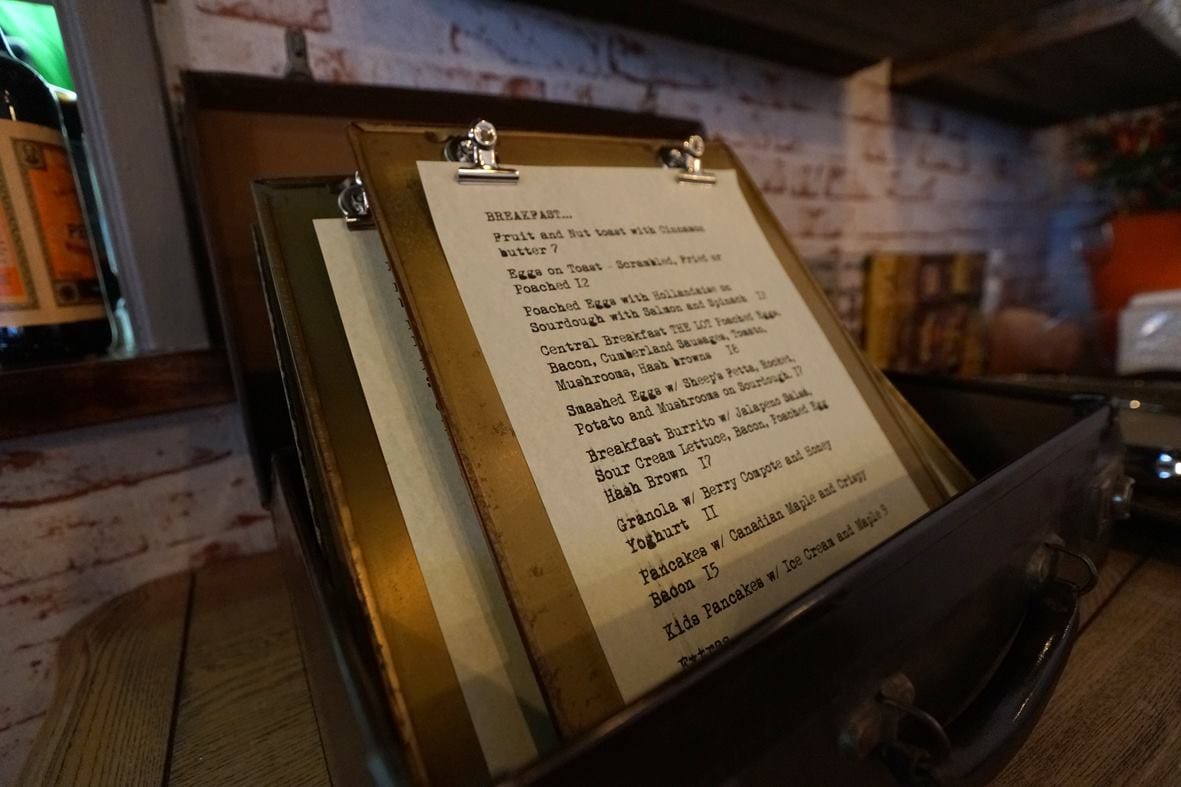 BREAKFAST...
Fruit and Nut toast with Cinnamon
butter 7
Eggs on Toast - Scrambled, Fried or
Poached I2
Poached Eggs with Hollandaise on
Sourdough with Salmon and Spinach I7
Central Breakfast THE LOT Poached Eggs,
Bacon, Cumberland Sausages, Tomato,
Mushrooms, Hash browns I8
Smashed Eggs w/ Sheep's Fetta, Rocket,
Potato and Mushrooms on Sourdough I7
Breakfast Burrito w/ Jalapeno Salsa,
Sour Cream Lettuce, Bacon, Poached Egg
Hash Brown I7
Granola w/ Berry Compote and Honey
Yoghurt II
Pancakes w/ Canadian Maple and Crispy
Bacon I5
Kids Pancakes w/ Ice Cream and Maple 9
Extras